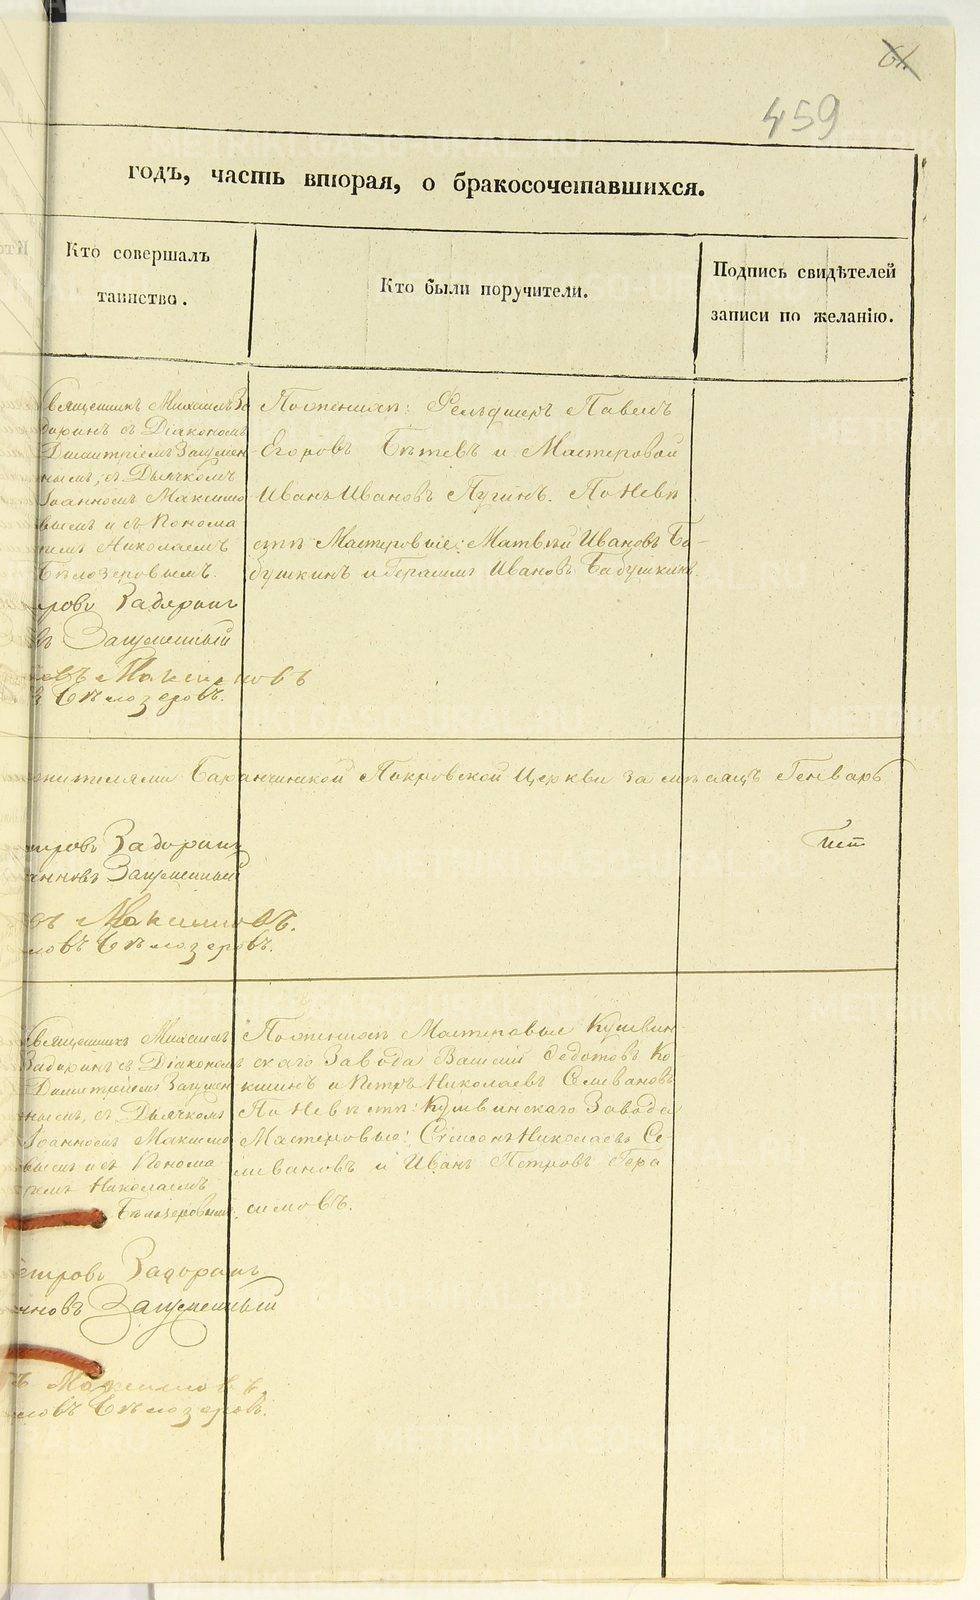 459
годъ, часть вторая, о бракосочетавшихся.
Кто совершалъ
таинство.
Кто были поручители.
Подпись свидѣтелей
записи по желанію.
Священникъ Михаилъ За
доринъ съ Діакономъ
Димитріемъ Загумен
нымъ, съ Дьячкомъ
Іоанномъ Максимо
вымъ и съ Понома
ремъ Николаемъ
Бѣлозеровымъ.
Задоринъ
Загуменный
Максимовъ
Бѣлозеровъ.
По женихѣ: Фельдшеръ Павелъ
Егоровъ и Мастеровой
Иванъ Ивановъ Пугинъ. По Невѣ
стѣ Мастеровые: Матвѣй Ивановъ Ба-
бушкинъ и Герасимъ Ивановъ Бабушкинъ.
Баранчинской Покровской Церкви за мѣсяцъ Генварь
Задоринъ
Загуменный
Максимовъ.
Бѣлозеровъ.
Священникъ Михаилъ
Задоринъ съ Діакономъ
Димитріемъ Загумен
нымъ, съ Дьячкомъ
Іоанномъ Максимо
вымъ и съ Понома
ремъ Николаемъ
Бѣлозеровымъ.
По женихѣ Мастеровые Кушвин-
скаго Завода Василій Федотовъ Ко
кшинъ и Петръ Николаевъ Селивановъ
По Невѣстѣ: Кушвинскаго Завода
Мастеровые: Симеонъ Николаевъ Се-
ливановъ и Иванъ Петровъ Гера
симовъ.
Задоринъ
Загуменный
Максимовъ.
Бѣлозеровъ.
METRIKI.GASO-URAL.RU